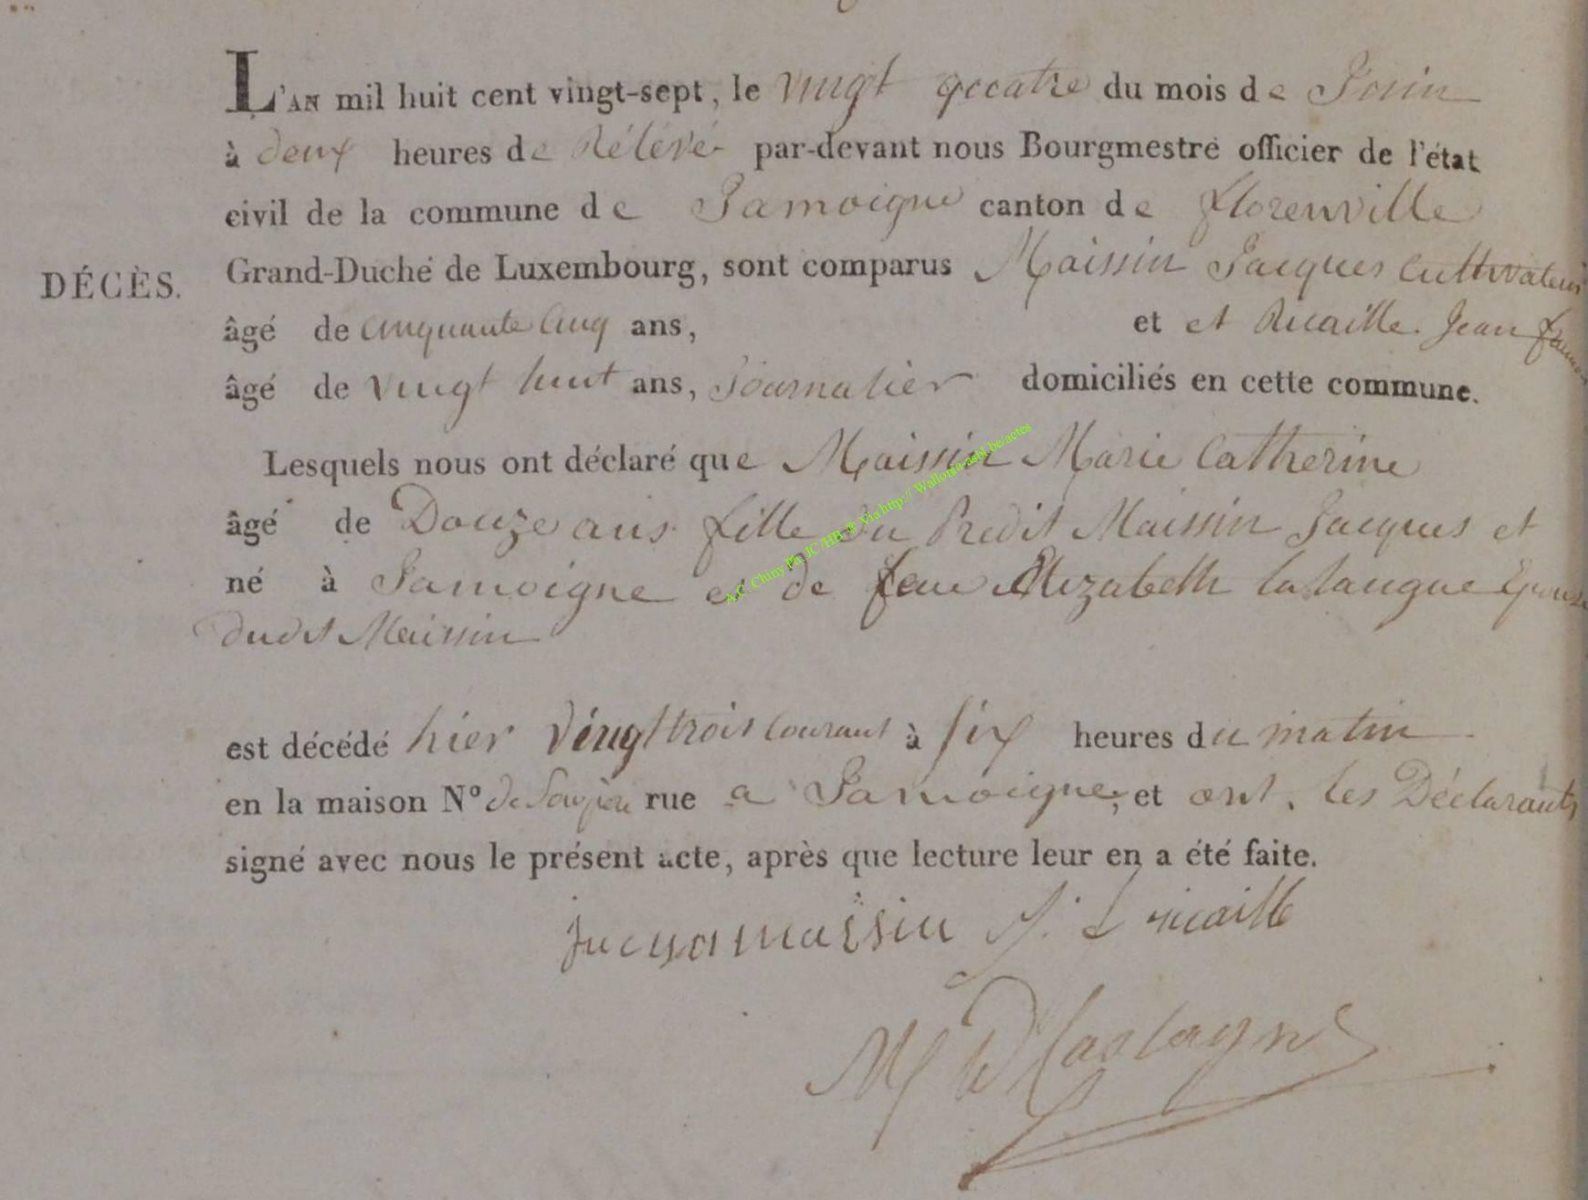 L'AN mil huit cent vingt-sept, le vingt quatre du mois de Juin
à deux heures de Rélévé par-devant nous Bourgmestre officier de l'état
civil de la commune de Jamoigne canton de florenville
DÉCÈS.
Grand-Duché de Luxembourg, sont comparus Maissin Jacques Cultivateur
âgé de cinquante cinq ans, et et Ricaille Jean
âgé de vingt huit ans, Journalier domiciliés en cette commune.
Lesquels nous ont déclaré que Maissin Marie Catherine
âgé de Douze ans fille du Predit Maissin Jacques et
né à Jamoigne et de feue Elizabeth Lalangue Epouse
dudit Maissin
est décédé hier vingt trois courant à six heures du matin
en la maison N° de rue a Jamoigne, et ont les Déclarants
signé avec nous le présent acte, après que lecture leur en a été faite.
maissin J: ricaille
A.C. Chiny Ph JC/HB & Via http:// Wallonia-asbl.be/actes